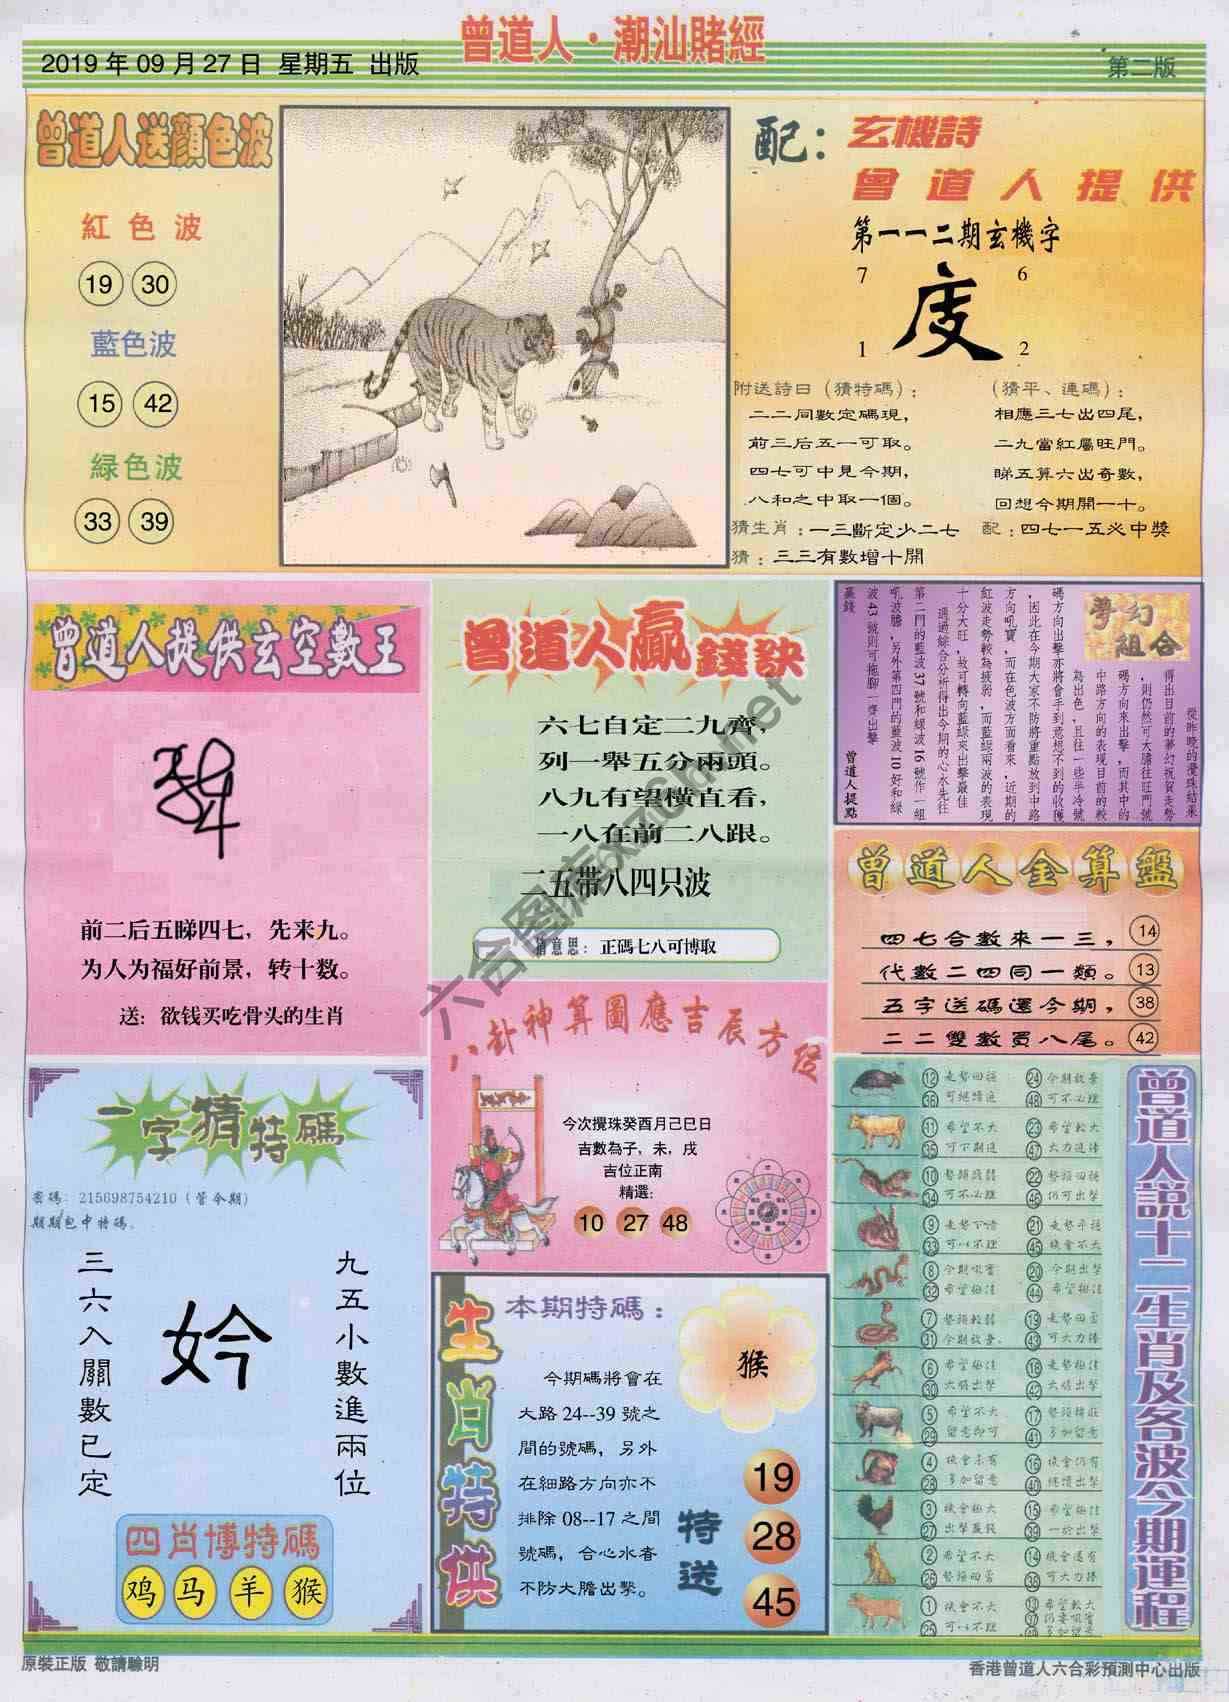 曾道人·潮汕賭經
2019年09月27日 星期五 出版
第二版
曾道人送顏色波
紅色波
19 30
藍色波
15 42
綠色波
33 39
配：玄機詩
曾道人提供
第一一二期玄機字
7 6
1 2
附送詩曰（猜特碼）：
二二同數定碼現，
前三后五一可取。
四七可中見今期，
八和之中取一個。
（猜平、連碼）：
相應三七出四尾，
二九當紅屬旺門。
睇五算六出奇數，
回想今期開一十。
猜生肖：一三斷定少二七
配：四七一五必中獎
猜：三三有數增十開
曾道人提供玄空數王
前二后五睇四七，先来九。
为人为福好前景，转十数。
送：欲钱买吃骨头的生肖
曾道人贏錢訣
六七自定二九齊，
列一舉五分兩頭。
八九有望橫直看，
一八在前二八跟。
二五帶八四只波
猜意思：正碼七八可博取
夢幻組合
從昨晚的攪珠結果
得出目前的夢幻祝賀走勢
，則仍然可大膽往旺門號
碼方向來出擊，而其中的
中路方向的表現目前的較
為出色，且往一些半冷號
碼方向出擊亦將會手到意想不到的收穫
，因此在今期大家不防將重點放到中路
方向吼寶，而在色波方面看來，近期的
紅波走勢較為疲弱，而藍綠兩波的表現
十分大旺，故可轉向藍綠來出擊最佳
通過綜合分析得出今期的心水先往
第二門的藍波37號和綠波16號作一組
吼波膽，另外第四門的藍波10好和綠
波43號則可拖腳一齊出擊
贏錢
曾道人提點
曾道人金算盤
四七合數來一三， 14
代數二四同一類。 13
五字送碼還今期， 38
二二雙數買八尾。 42
八卦神算圖應吉辰方位
今次攪珠癸酉月己巳日
吉數為子，未，戌
吉位正南
精選：
10 27 48
一字猜特碼
密碼：215698754210（管今期）
期期包中特碼。
三六入關數已定
妗
九五小數進兩位
四肖博特碼
鸡 马 羊 猴
生肖特供
本期特碼：
猴
今期碼將會在
大路24--39號之
間的號碼，另外
在細路方向亦不
排除08--17之間
號碼，合心水者
不防大膽出擊。
特送
19
28
45
曾道人說十二生肖及各波今期運程
12 24
36 48
11 希望不大 23 希望較大
35 可下期追 47 大力追捧
10 22
34 可不必理 46 仍可出擊
9 21
33 可以不理 45 機會不大
8 今期吼實 20 今期出擊
32 希望極佳 44 希望極佳
7 19
31 43 可大力捧
6 希望極佳 18 走勢極佳
30 大膽出擊 42 大膽出擊
5 希望不大 17
29 留意即可 41 多加留意
4 機會未有 16 機會仍有
28 多加留意 40 繼續出擊
3 機會極大 15 希望極佳
27 出擊贏錢 39 一於出擊
2 希望不大 14 機會還有
26 38 可大力捧
1 機會不大 13 希望較大
25 可以不理 37
原裝正版 敬請驗明
香港曾道人六合彩預測中心出版